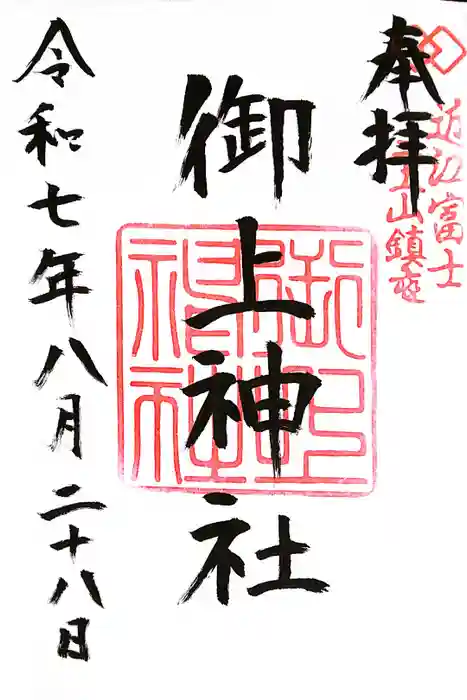 奉拝
近江富士
三上山鎮座
御上神社
御上神社
令和七年八月二十八日